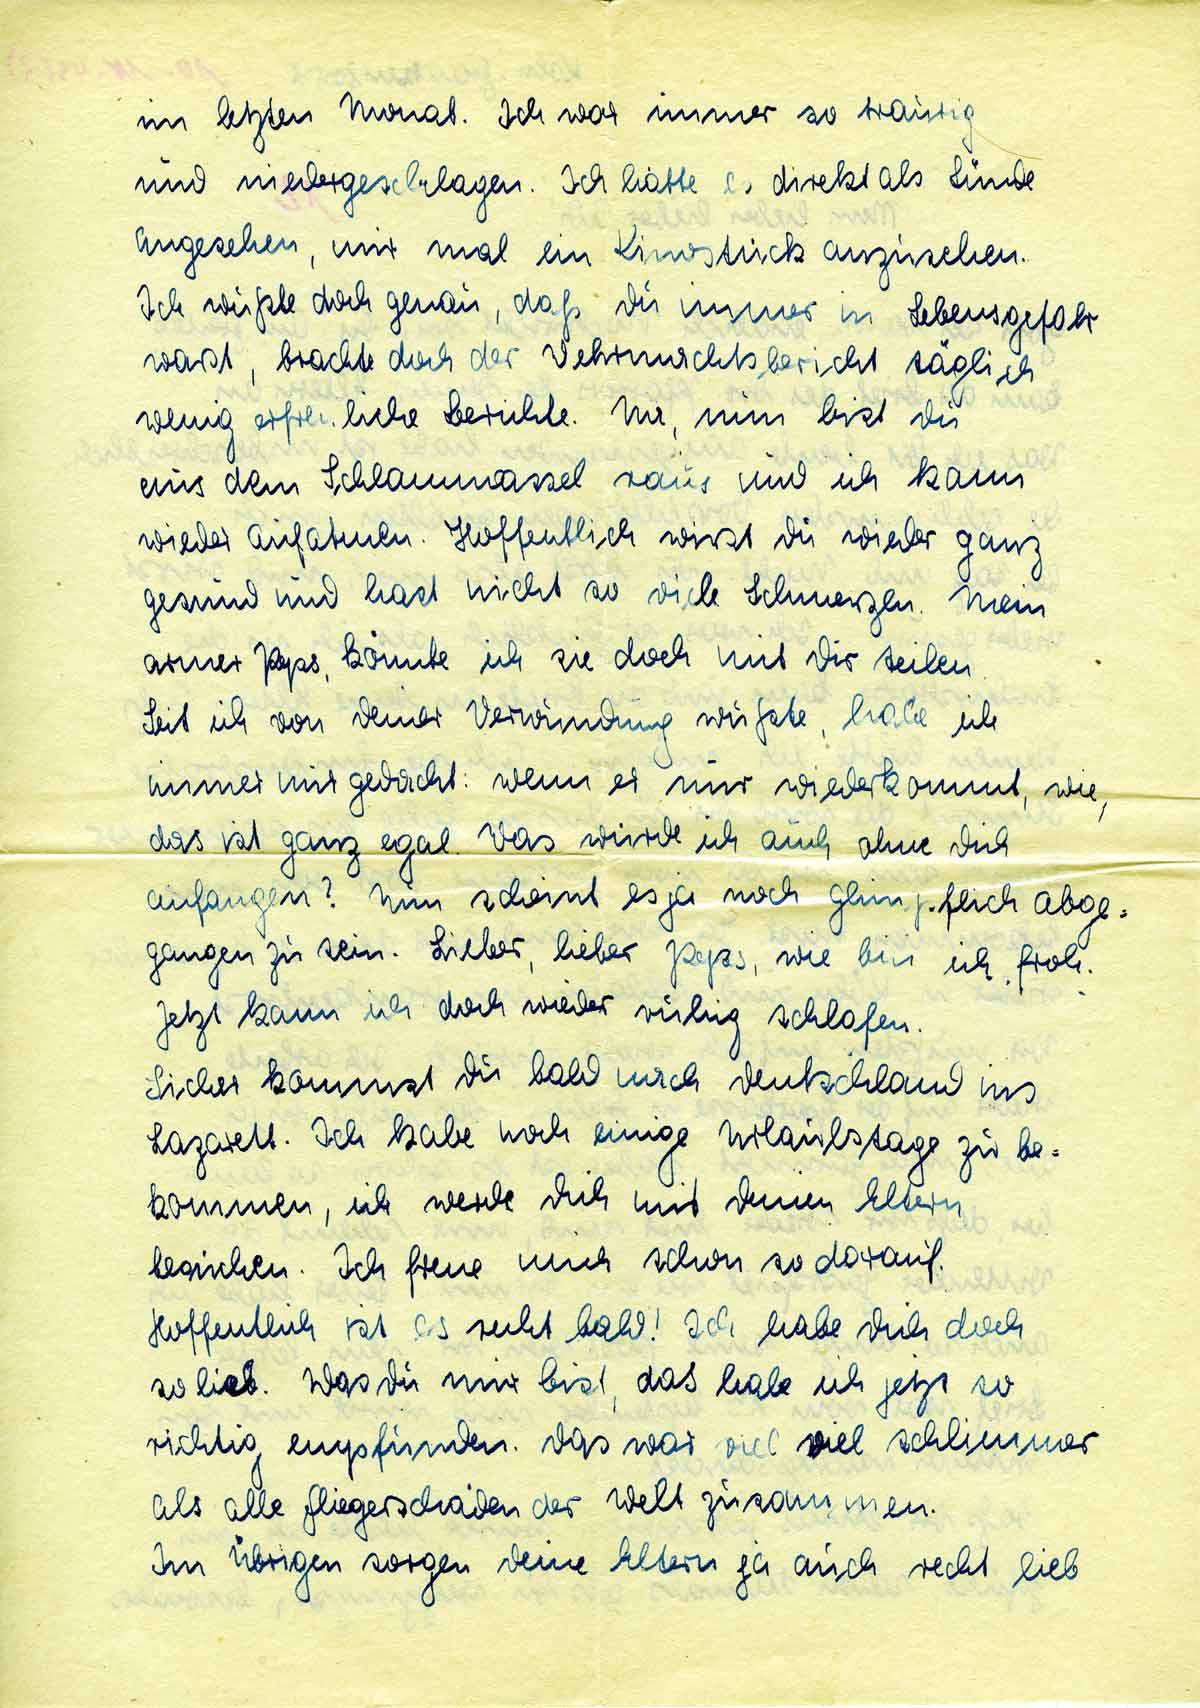 im letzten Monat. Ich war immer so traurig
und niedergeschlagen. Ich hätte es direkt als Sünde
angesehen, mir mal ein Kinostück anzusehen.
Ich wußte doch genau, daß du immer in Lebensgefahr
warst, brachte doch der Wehrmachtsbericht täglich
wenig erfreuliche Berichte. Na, nun bist du
aus dem Schlammassel raus und ich kann
wieder aufatmen. Hoffentlich wirst du wieder ganz
gesund und hast nicht so viele Schmerzen. Mein
armer Paps, könnte ich sie doch mit dir teilen.
Seit ich von deiner Verwundung wußte, habe ich
immer nur gedacht: wenn er nur wiederkommt, wie,
das ist ganz egal. Was würde ich auch ohne dich
anfangen? Nun scheint es ja noch glimpflich abge=
gangen zu sein. Lieber, lieber Paps, wie bin ich froh.
Jetzt kann ich doch wieder ruhig schlafen.
Sicher kommst du bald nach Deutschland ins
Lazarett. Ich habe noch einige Urlaubstage zu be=
kommen, ich werde dich mit deinen Eltern
besuchen. Ich freue mich schon so darauf.
Hoffentlich ist es recht bald! Ich habe dich doch
so lieb. Was du mir bist, das habe ich jetzt so
richtig empfunden. Das war viel viel schlimmer
als alle Fliegerschäden der Welt zusammen.
Im übrigen sorgen deine Eltern ja auch recht lieb